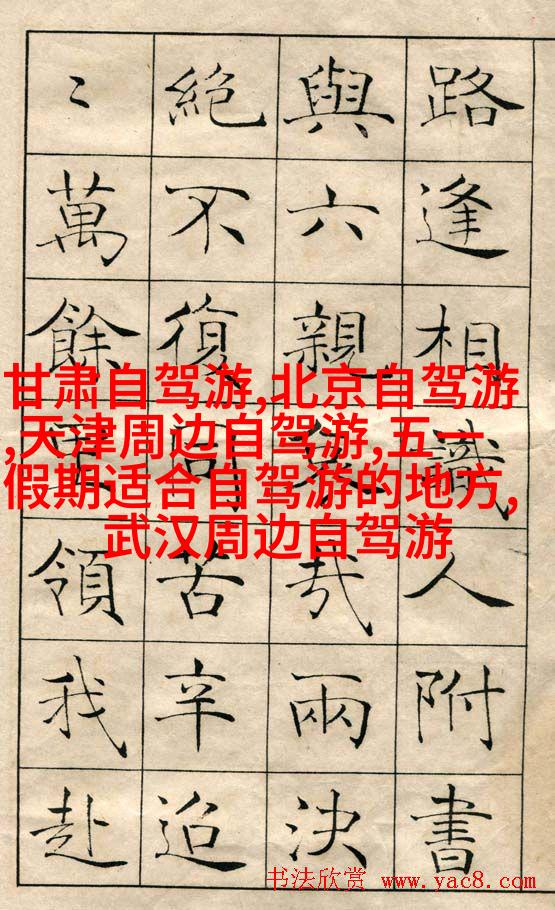 路逢相識人附書
與六親哉兩決
絕不復同苦辛迢
〻萬餘領我赴
甘肃自驾游,北京自驾游
,天津周边自驾游,五一
假期适合自驾游的地方,
武汉周边自驾游
书法欣赏 www.yac8.com